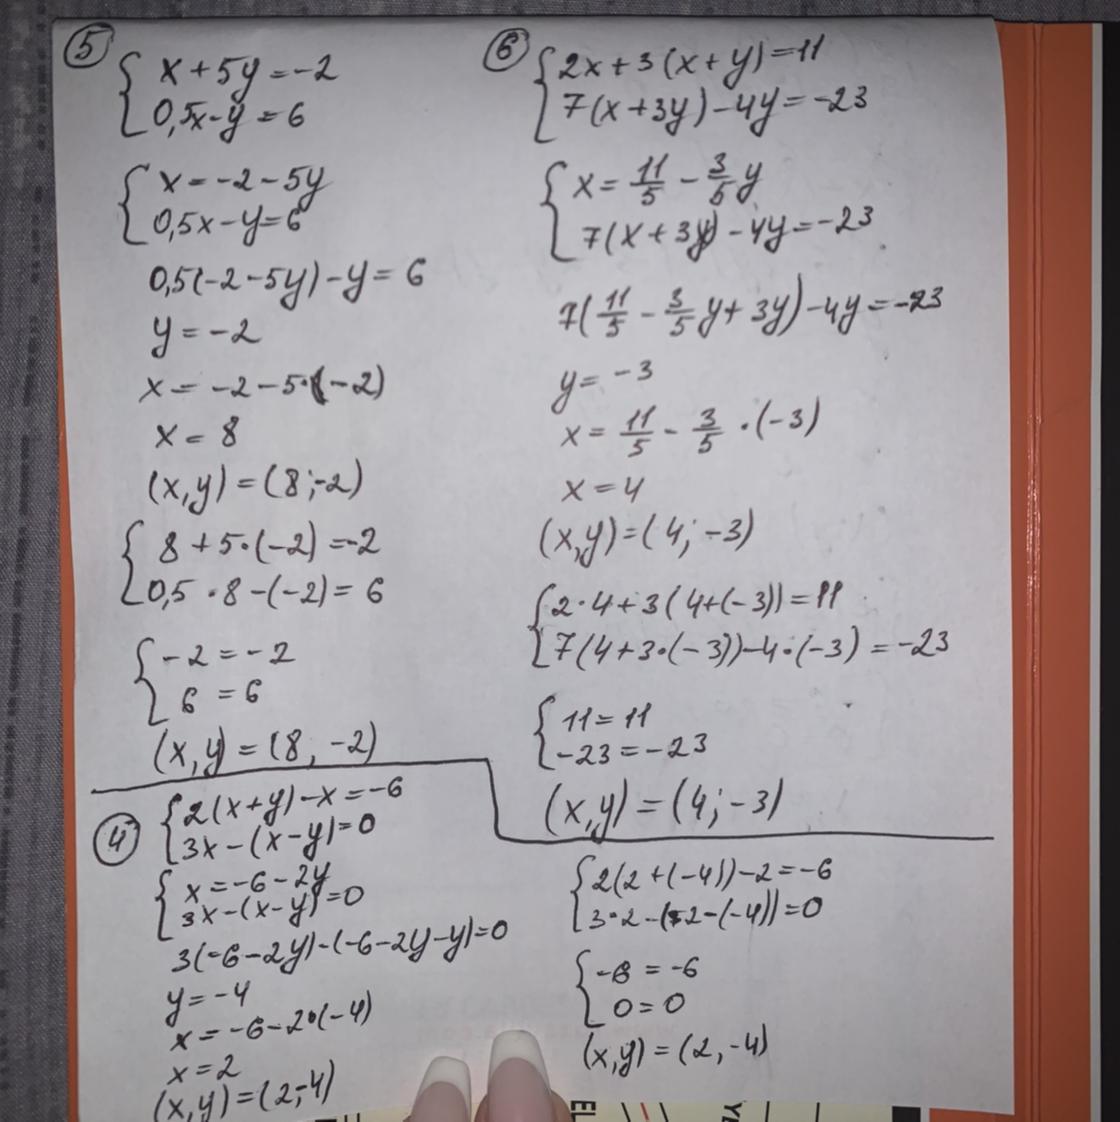 5
{ x+5y=-2
0,5x-y=6
{ x=-2-5y
0,5x-y=6
0,5(-2-5y)-y=6
y=-2
x=-2-5·(-2)
x=8
(x,y)=(8;-2)
{ 8+5·(-2)=-2
0,5·8-(-2)=6
{ -2=-2
6=6
(x,y)=(8,-2)
6
{ 2x+3(x+y)=11
7(x+3y)-4y=-23
{ x=11/5-3/5y
7(x+3y)-4y=-23
7(11/5-3/5y+3y)-4y=-23
y=-3
x=11/5-3/5·(-3)
x=4
(x,y)=(4;-3)
{ 2·4+3(4+(-3))=11
7(4+3·(-3))-4·(-3)=-23
{ 11=11
-23=-23
(x,y)=(4;-3)
4
{ 2(x+y)-x=-6
3x-(x-y)=0
{ x=-6-2y
3x-(x-y)=0
3(-6-2y)-(-6-2y-y)=0
y=-4
x=-6-2·(-4)
x=2
(x,y)=(2;-4)
{ 2(2+(-4))-2=-6
3·2-(2-(-4))=0
{ -6=-6
0=0
(x,y)=(2,-4)
EL